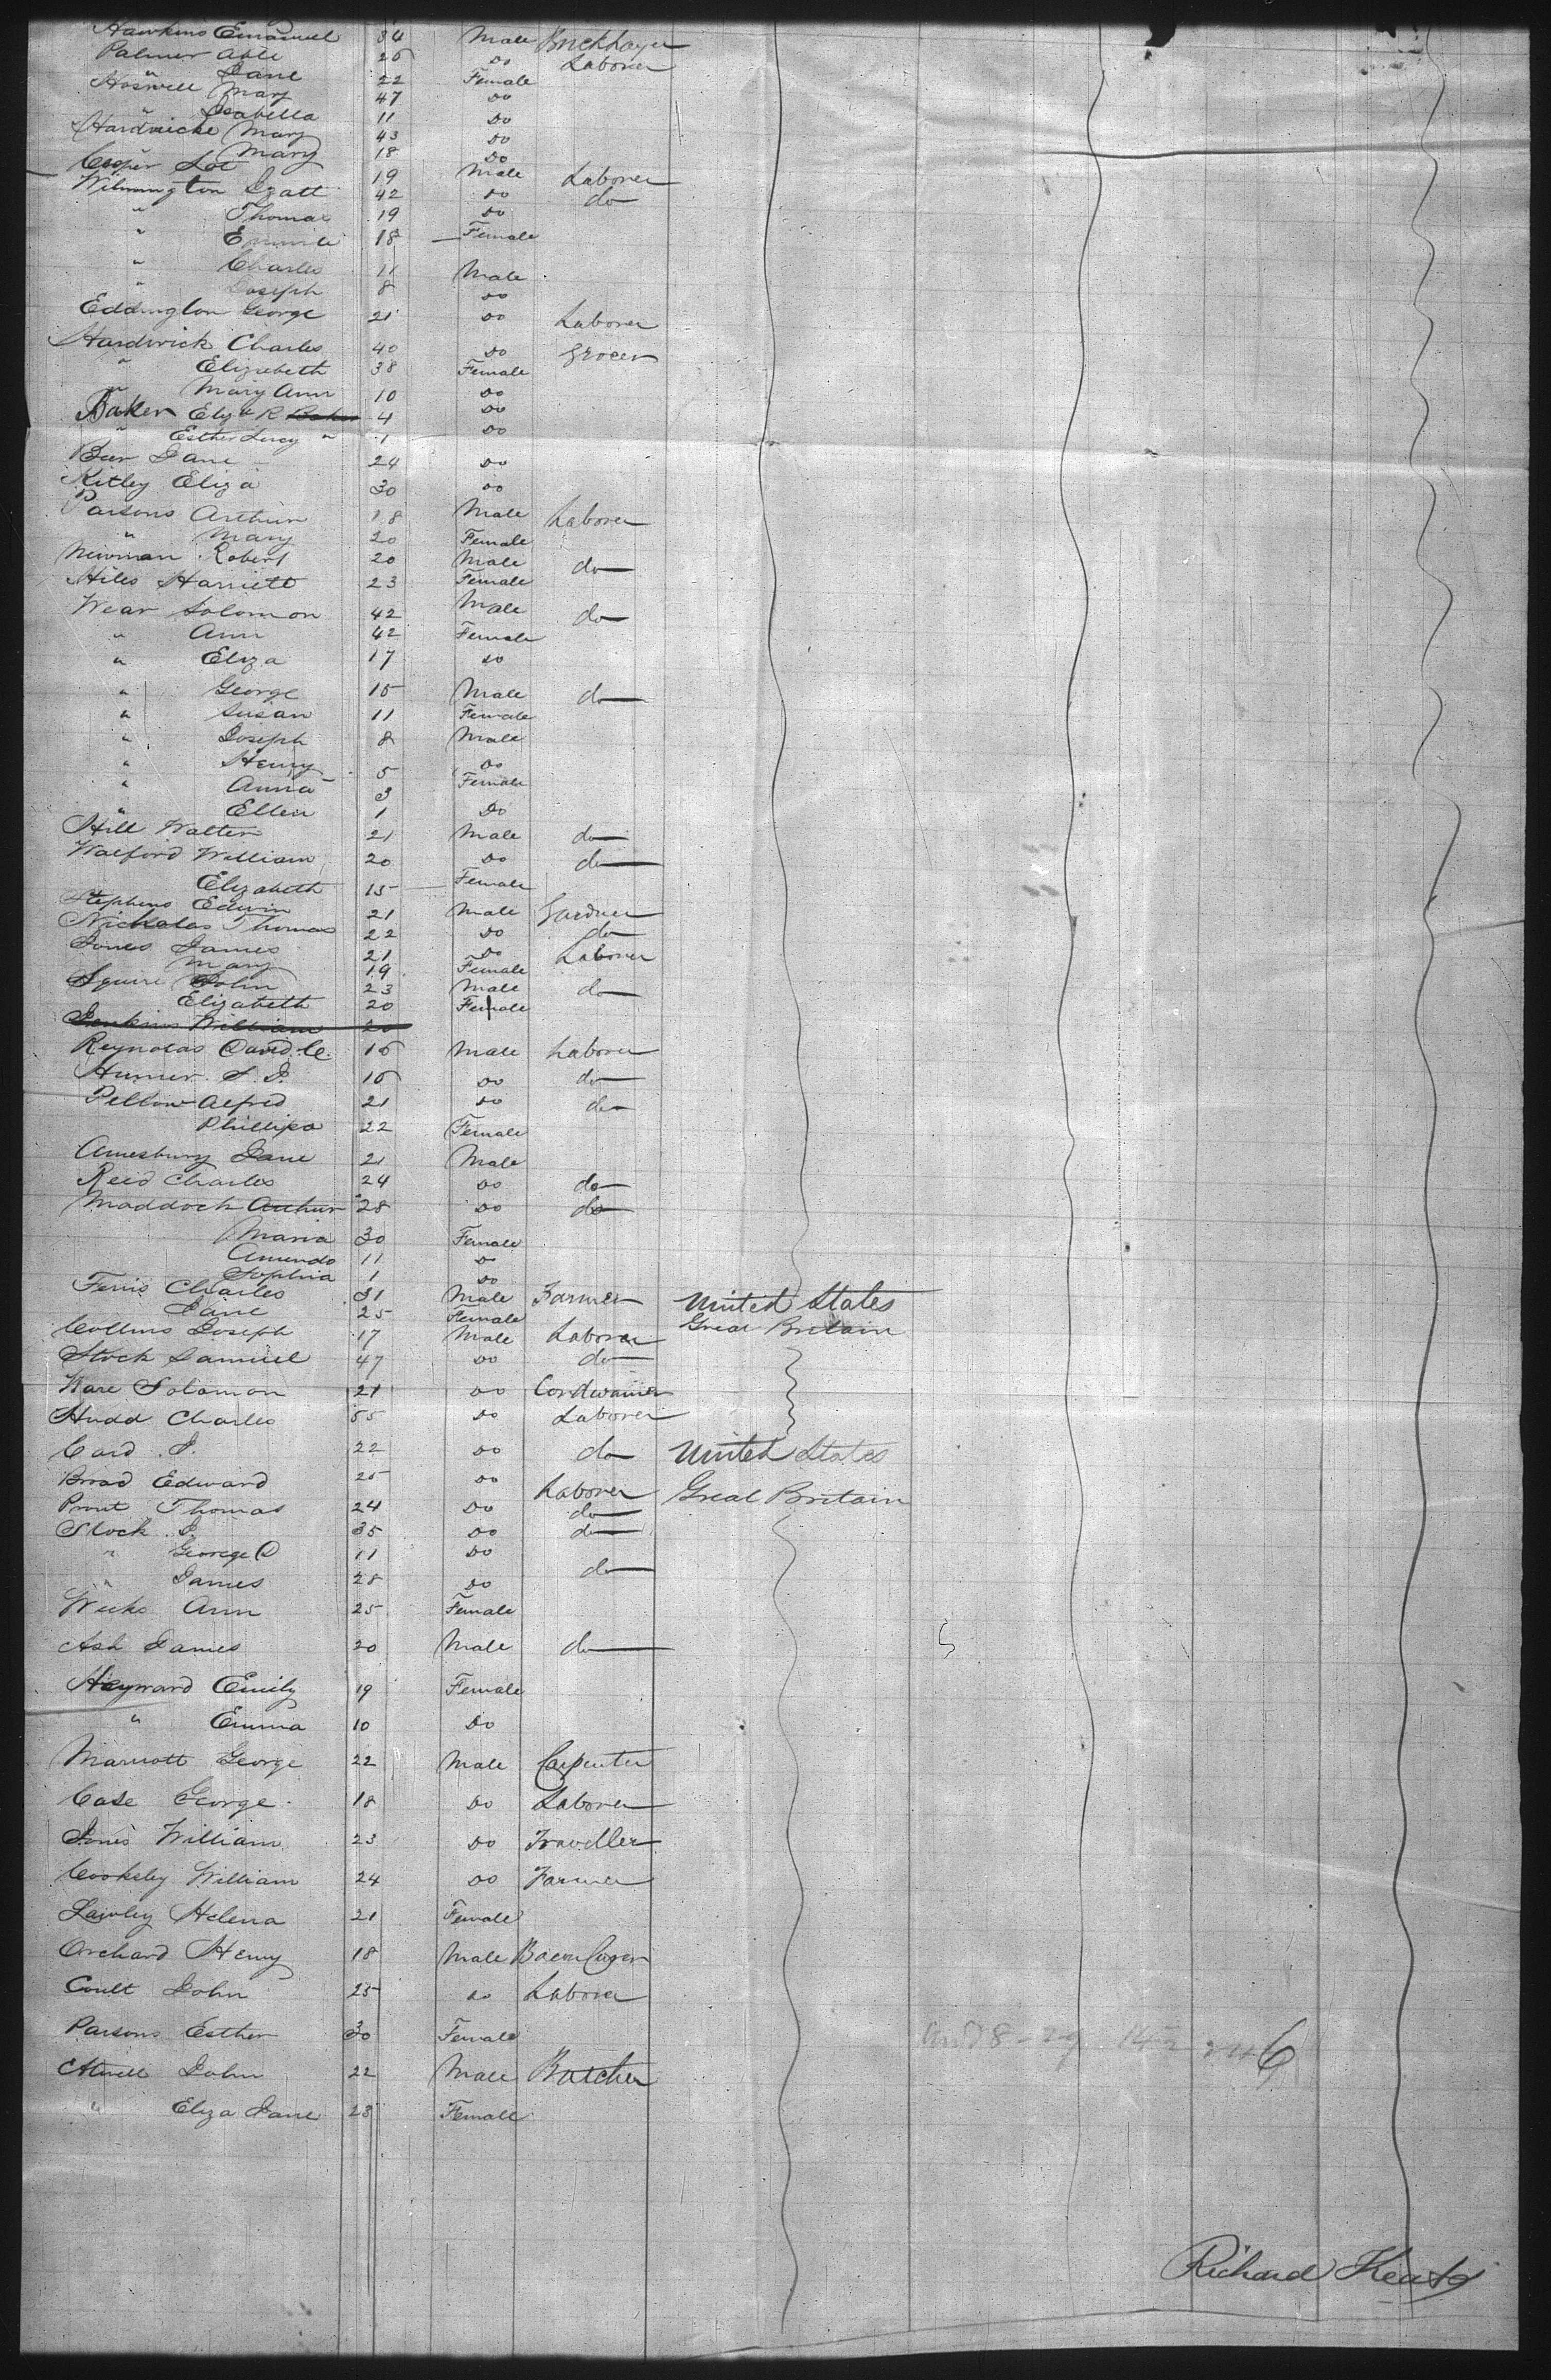 Hawkins Emanuel 34 Male Bricklayer
Palmer Able 26 Do Laborer
" Jane 22 Female
Hoswell Mary 47 Do
" Isabella 11 Do
Hardwicke Mary 43 Do
" Mary 18 Do
Cooper Lot 19 Male Laborer
Wilmington Izatt 42 Do do
" Thomas 19 Do
" 18 Female
" Charles 11 Male
" Joseph 8 Do
Eddington George 21 Do Laborer
Hardwick Charles 40 Do Grocer
" Elizabeth 38 Female
" Mary Ann 10 Do
Baker Elizth R Baker 4 Do
" Esther Lucy " 1 Do
Beer Jane 24 Do
Kitley Eliza 30 Do
Parsons Arthur 18 Male Laborer
" Mary 20 Female
Newman Robert 20 Male do
Hiles Harriett 23 Female
Wear Solomon 42 Male do
" Ann 42 Female
" Eliza 17 Do
" George 15 Male do
" Susan 11 Female
" Joseph 8 Male
" Henry 5 Do
" Anna 3 Female
" Ellen 1 Do
Hill Walter 21 Male do
Walford William 20 Do do
Elizabeth 15 Female
Stephens Edwin 21 Male Gardner
Nicholas Thomas 22 Do do
Jones James 21 Do Laborer
Mary 19 Female
Squire John 23 Male do
Elizabeth 20 Female
Jenkins William 20
Reynolds David C. 16 Male Laborer
S. J. 16 Do do
Pellow Alfred 21 Do do
Phillipa 22 Female
Amesbury Jane 21 Male
Reed Charles 24 Do do
Maddock Arthur 28 Do do
Maria 30 Female
Amendo 11 Do
Sophia 1 Do
Ferris Charles 31 Male Farmer United States
Jane 25 Female Great Britain
Collins Joseph 17 Male Laborer
Stock Samuel 47 Do do
Ware Solomon 21 Do Cordwainer
Hudd Charles 55 Do Laborer
Card J. 22 Do do United States
Broad Edward 25 Do Laborer Great Britain
Prout Thomas 24 Do do
Stock J. 35 Do do
" George D 11 Do
" James 28 Do do
Weeks Ann 25 Female
Ash James 20 Male do
Hayward Emily 19 Female
" Emma 10 Do
Marriott George 22 Male Carpenter
Case George 18 Do Laborer
Jones William 23 Do Traveller
Cooksley William 24 Do Farmer
Lawley Helena 21 Female
Orchard Henry 18 Male Bacon Curer
Coult John 25 Do Laborer
Parsons Esther 30 Female
Atwell John 22 Male Butcher
" Eliza Jane 28 Female
6
Richard Keats